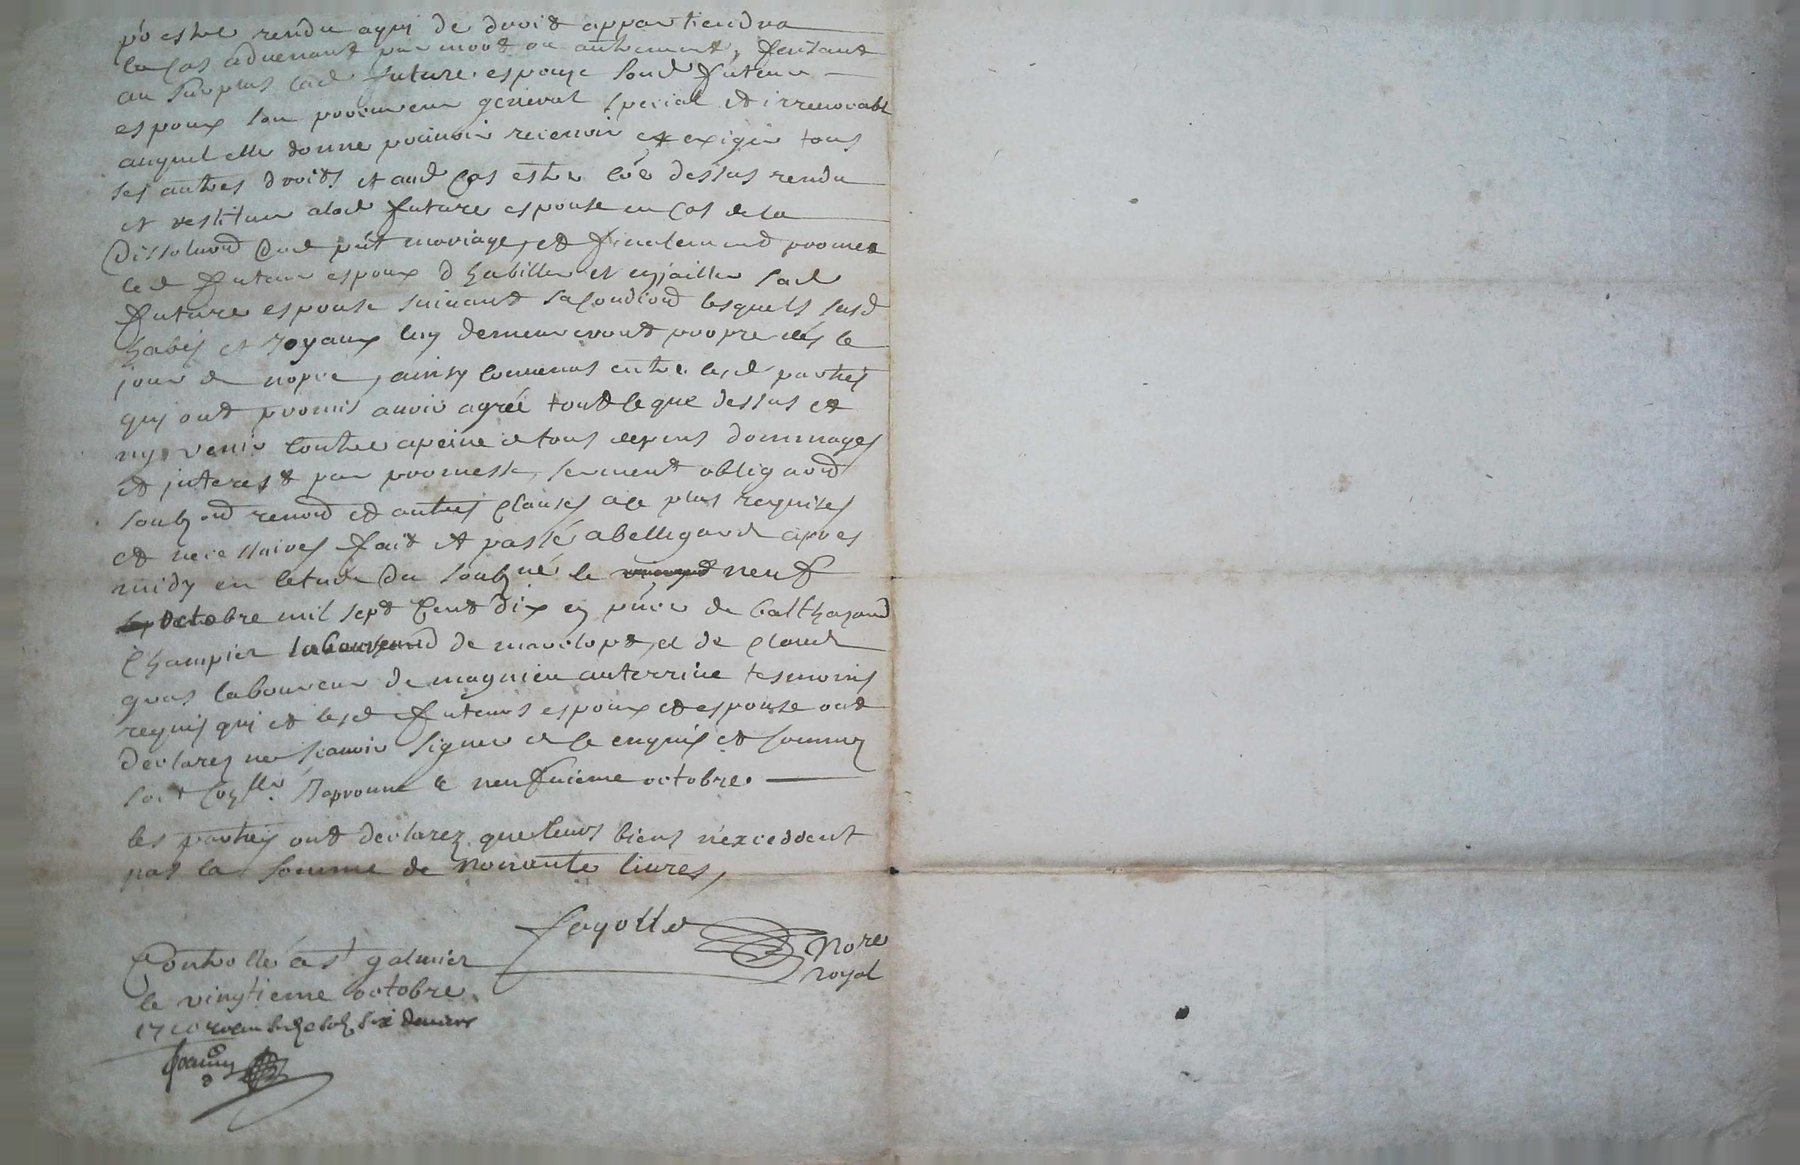 po estre rendu a quy de droit appartiendra
le cas advenant par mort ou autrement, faisant
au surplus lad future espouze soud futeur
espoux son procureur general special et irrevocable
auquel elle donne pouvoir recevoir et exiger tous
ses autres droits et aud cas estre co'e dessus rendu
et restituer alad future espouse en cas de la
dissolu'on dud p'nt mariage, et finalement promet
led futeur espoux d'habiller et enjoailler sad
future espouse suivant sa condi'on lesquels susd
habis et joyaux luy demeureront propre dès le
jour de nopce, ainsy convenus entre lesd parties
quy ont promis avoir agréé tout ce que dessus et
ny venir contre a peine de tous depens dommages
et jnterest par promesse, serment obliga'on
soubz'on renon'on et autres clauses a ce plus requises
et necessaires fait et passé a bellegarde apres
midy en letude du soubz'né le neuf
octobre mil sept cent dix en p'nce de balthazard
Champier laboureur de de claude
gras laboureur de magnieu auterrive tesmoins
requis qui et lesd futeurs espoux et espouse ont
declarez ne scavoir signer de ce enquis et sommez
soit con'llé le neufvieme octobre.
les parties ont declarez que leurs biens n'exceddent
pas la somme de nonante livres,
fayolle No're
royal
Controllé a st galmier
le vingtieme octobre
1710 six deniers